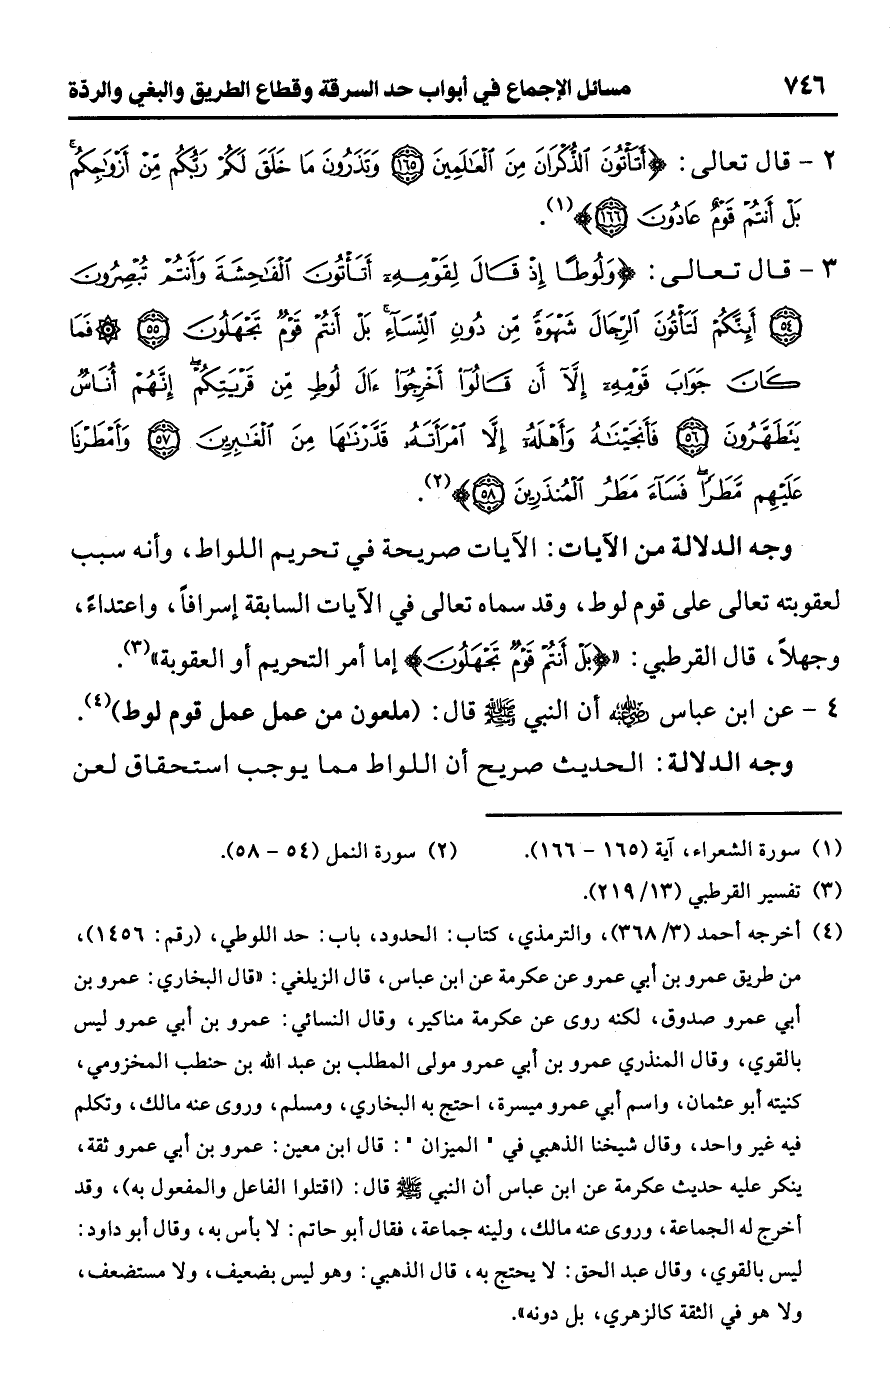 ٧٤٦ مسائل الإجماع في أبواب حد السرقة وقطاع الطريق والبغي والردّة
٢ - قال تعالى: ﴿أَتَأْتُونَ ٱلذُّكْرَانَ مِنَ ٱلْعَٰلَمِينَ ١٦٥ وَتَذَرُونَ مَا خَلَقَ لَكُمْ رَبُّكُم مِّنْ أَزْوَٰجِكُم ۚ
بَلْ أَنتُمْ قَوْمٌ عَادُونَ ١٦٦﴾(١).
٣ - قال تعالى: ﴿وَلُوطًا إِذْ قَالَ لِقَوْمِهِۦٓ أَتَأْتُونَ ٱلْفَٰحِشَةَ وَأَنتُمْ تُبْصِرُونَ
٥٤ أَئِنَّكُمْ لَتَأْتُونَ ٱلرِّجَالَ شَهْوَةً مِّن دُونِ ٱلنِّسَآءِ ۚ بَلْ أَنتُمْ قَوْمٌ تَجْهَلُونَ ٥٥ ۞ فَمَا
كَانَ جَوَابَ قَوْمِهِۦٓ إِلَّآ أَن قَالُوٓا۟ أَخْرِجُوٓا۟ ءَالَ لُوطٍ مِّن قَرْيَتِكُمْ ۖ إِنَّهُمْ أُنَاسٌ
يَتَطَهَّرُونَ ٥٦ فَأَنجَيْنَٰهُ وَأَهْلَهُۥٓ إِلَّا ٱمْرَأَتَهُۥ قَدَّرْنَٰهَا مِنَ ٱلْغَٰبِرِينَ ٥٧ وَأَمْطَرْنَا
عَلَيْهِم مَّطَرًا ۖ فَسَآءَ مَطَرُ ٱلْمُنذَرِينَ ٥٨﴾(٢).
وجه الدلالة من الآيات: الآيات صريحة في تحريم اللواط، وأنه سبب
لعقوبته تعالى على قوم لوط، وقد سماه تعالى في الآيات السابقة إسرافاً، واعتداءً،
وجهلاً، قال القرطبي: «﴿بَلْ أَنتُمْ قَوْمٌ تَجْهَلُونَ﴾ إما أمر التحريم أو العقوبة»(٣).
٤ - عن ابن عباس رضي الله عنه أن النبي ﷺ قال: (ملعون من عمل عمل قوم لوط)(٤).
وجه الدلالة: الحديث صريح أن اللواط مما يوجب استحقاق لعن
(١) سورة الشعراء، آية (١٦٥ - ١٦٦). (٢) سورة النمل (٥٤ - ٥٨).
(٣) تفسير القرطبي (١٣/ ٢١٩).
(٤) أخرجه أحمد (٣/ ٣٦٨)، والترمذي، كتاب: الحدود، باب: حد اللوطي، (رقم: ١٤٥٦)،
من طريق عمرو بن أبي عمرو عن عكرمة عن ابن عباس، قال الزيلغي: «قال البخاري: عمرو بن
أبي عمرو صدوق، لكنه روى عن عكرمة مناكير، وقال النسائي: عمرو بن أبي عمرو ليس
بالقوي، وقال المنذري عمرو بن أبي عمرو مولى المطلب بن عبد الله بن حنطب المخزومي،
كنيته أبو عثمان، واسم أبي عمرو ميسرة، احتج به البخاري، ومسلم، وروى عنه مالك، وتكلم
فيه غير واحد، وقال شيخنا الذهبي في " الميزان ": قال ابن معين: عمرو بن أبي عمرو ثقة،
ينكر عليه حديث عكرمة عن ابن عباس أن النبي ﷺ قال: (اقتلوا الفاعل والمفعول به)، وقد
أخرج له الجماعة، وروى عنه مالك، ولينه جماعة، فقال أبو حاتم: لا بأس به، وقال أبو داود:
ليس بالقوي، وقال عبد الحق: لا يحتج به، قال الذهبي: وهو ليس بضعيف، ولا مستضعف،
ولا هو في الثقة كالزهري، بل دونه».